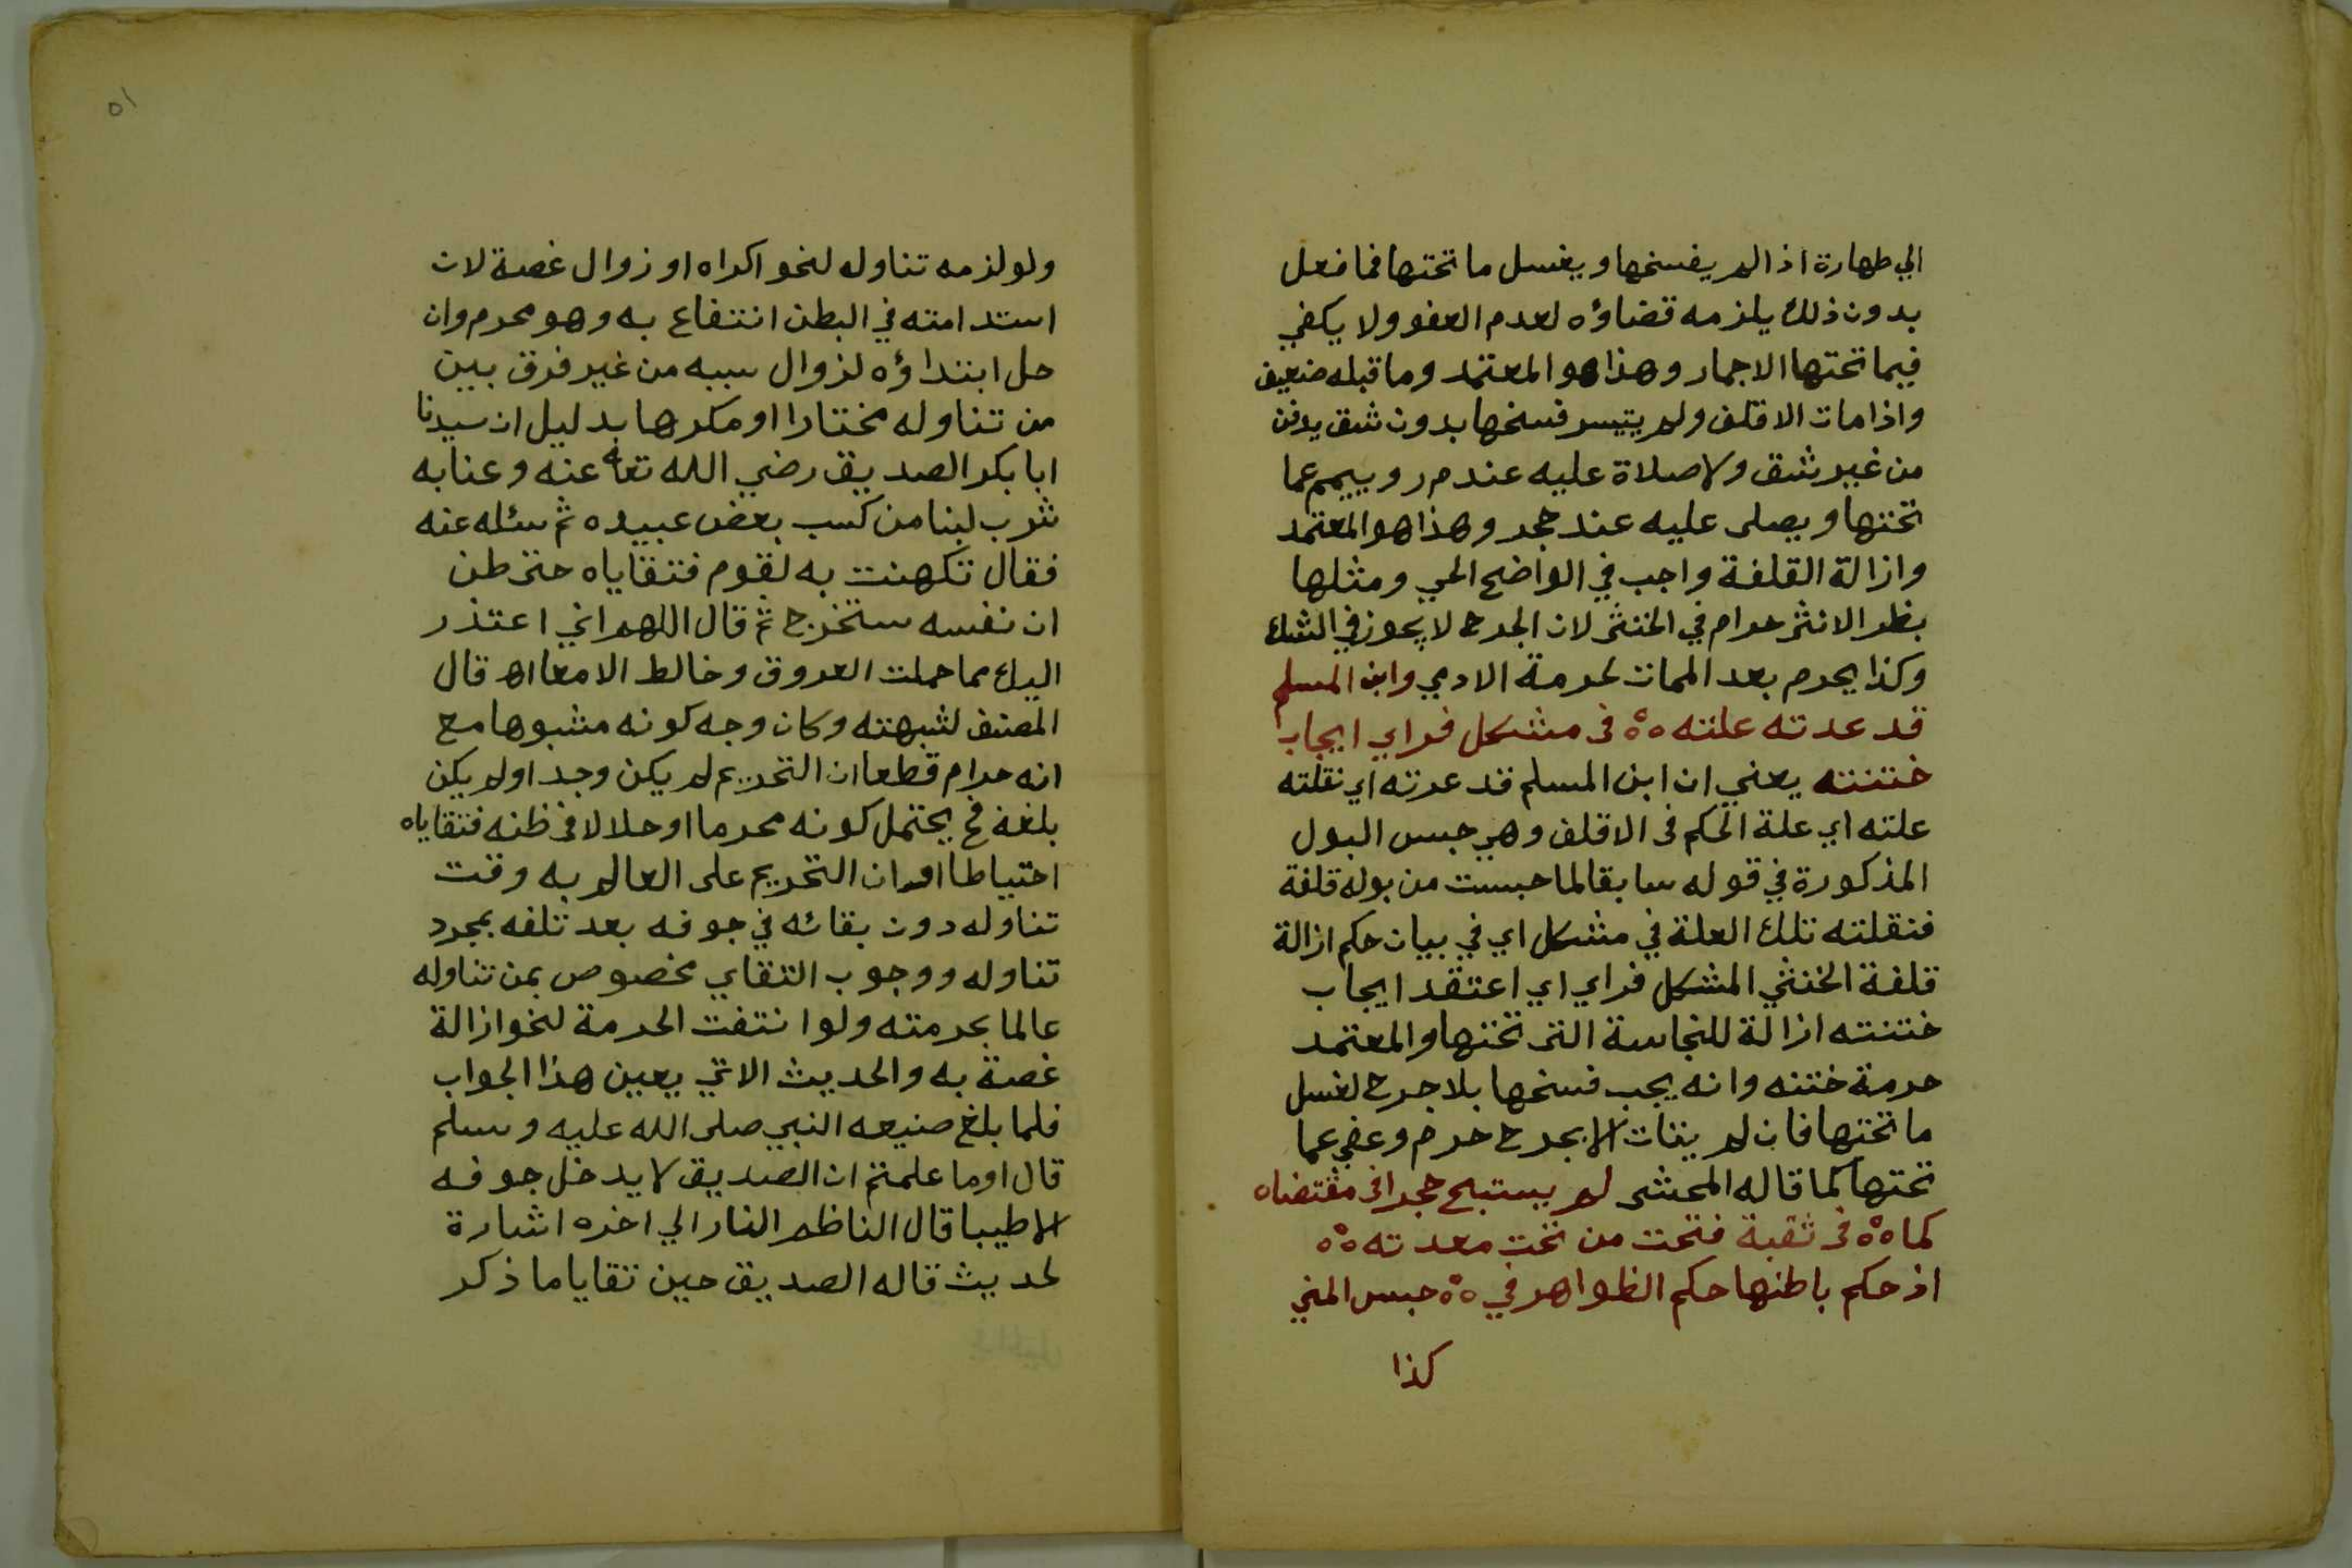 الي طهارة اذا لم يفسخها ويغسل ما تحتها فما فعل
بدون ذلك يلزمه قضاؤه لعدم العفو ولا يكفي
فيما تحتها الاجمار وهذا هو المعتمد وما قبله ضعيف
واذا مات الاقلف ولم يتيسر فسخها بدون شق يدفن
من غير شق ولا صلاة عليه عند م ر وييمم عما
تحتها ويصلى عليه عند حجر وهذا هو المعتمد
وازالة القلفة واجب في الواضح الحي ومثلها
بظر الانثى حرام في الخنثى لان الجرح لا يجوز في الشك
وكذا يحرم بعد الممات لحرمة الادمي وابن المسلم
قد عدته علته ٥٥ فى مشكل فراي ايجاب
ختنته يعني ان ابن المسلم قد عدته اي نقلته
علته اي علة الحكم فى الاقلف وهي حبس البول
المذكورة في قوله سابقا لما حبست من بوله قلفة
فنقلته تلك العلة في مشكل اي في بيان حكم ازالة
قلفة الخنثي المشكل فراي اي اعتقد ايجاب
ختنته ازالة للنجاسة التى تحتها والمعتمد
حرمة ختنه وانه يجب فسخها بلا جرح لغسل
ما تحتها فان لم يتات الا بجرح حرم وعفي عما
تحتها كما قاله المحشى لم يستبح حجرا فى مقتضاه
كما ٥٥ فى ثقبة فتحت من تحت معدته ٥٥
اذ حكم باطنها حكم الظواهر في ٥٥ حبس المني
كذا
٥١
ولو لزمه تناوله لنحو اكراه او زوال غصة لان
استدامته في البطن انتفاع به وهو محرم وان
حل ابتداؤه لزوال سببه من غير فرق بين
من تناوله مختارا او مكرها بدليل ان سيدنا
ابا بكر الصديق رضي الله تعا عنه وعنابه
شرب لبنا من كسب بعض عبيده ثم سئله عنه
فقال تكهنت به لقوم فتقاياه حتى ظن
ان نفسه ستخرج ثم قال اللهم اني اعتذر
اليك مما حملت العروق وخالط الامعا اه قال
المصنف لشبهته وكان وجه كونه مشبوها مع
انه حرام قطعا ان التحريم لم يكن وجد او لم يكن
بلغه فح يحتمل كونه محرما او حلالا فى ظنه فتقاياه
احتياطا او ان التحريم على العالم به وقت
تناوله دون بقائه في جوفه بعد تلفه بمجرد
تناوله ووجوب التقاي مخصوص بمن تناوله
عالما بحرمته ولو انتفت الحرمة لنحو ازالة
غصة به والحديث الاتي يعين هذا الجواب
فلما بلغ صنيعه النبي صلى الله عليه وسلم
قال اوما علمتم ان الصديق لا يدخل جوفه
الا طيبا قال الناظم النار الي اخره اشارة
لحديث قاله الصديق حين تقايا ما ذكر